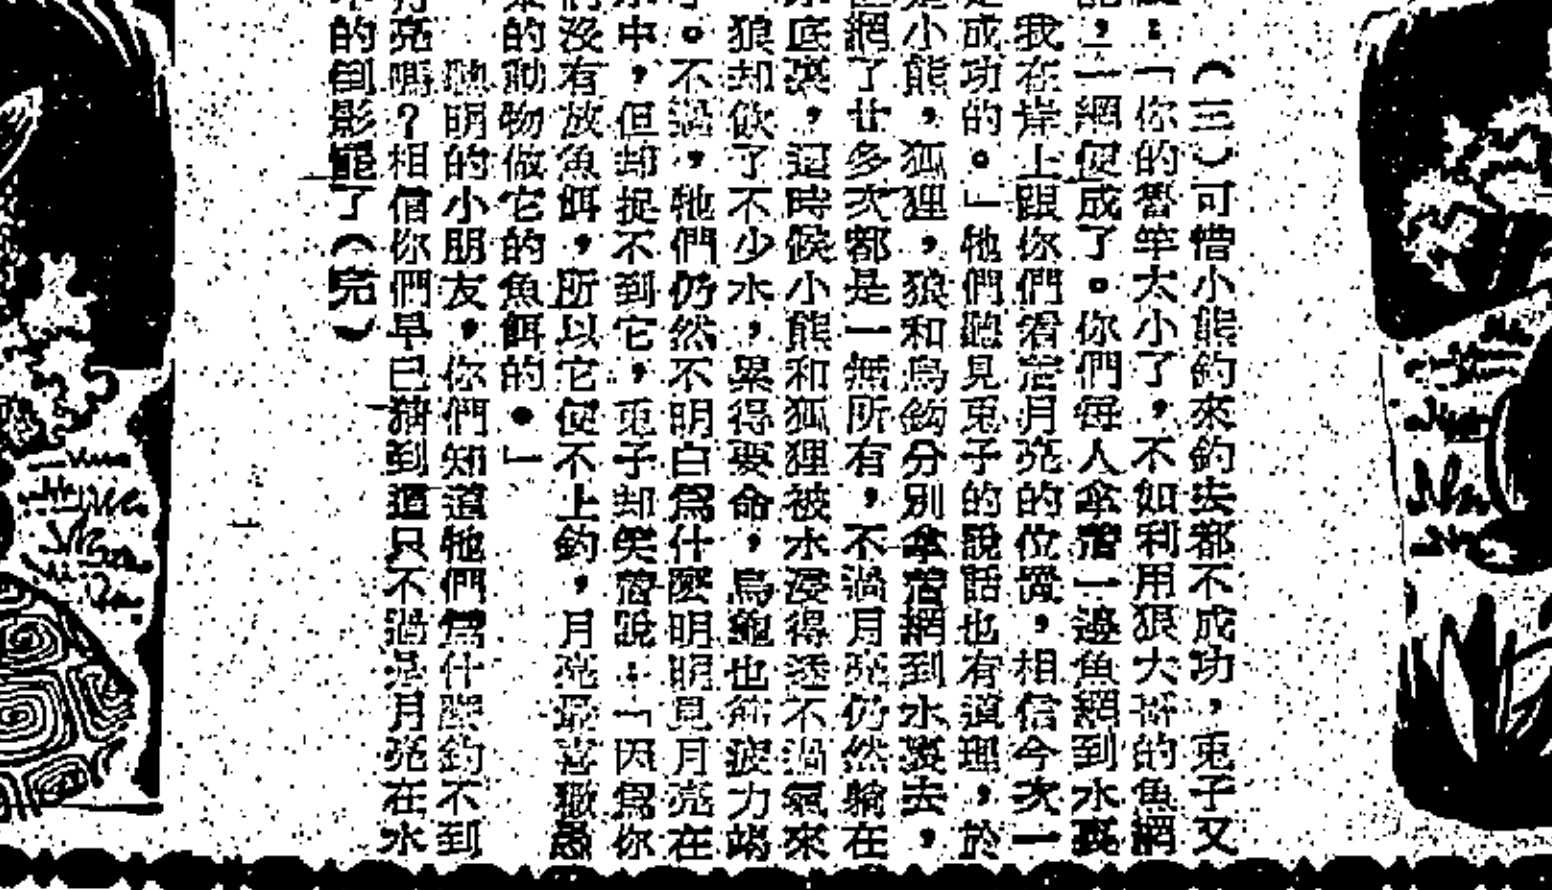 （三）可惜小熊釣來釣去都不成功，兎子又
：「你的釣竿太小了，不如利用狼大哥的魚網
，一網便成了。你們每人拿着一邊魚網到水裏
我在岸上跟你們看定月亮的位置，相信今次一
成功的。」牠們聽見兎子的說話也有道理，於
小熊，狐狸，狼和烏龜分別拿着網到水裏去，
網了廿多次都是一無所有，不過月亮仍然躺在
底裏，這時候小熊和狐狸被水浸得透不過氣來
狼却飲了不少水，累得要命，烏龜也筋疲力竭
。不過，牠們仍然不明白爲什麼明明見月亮在
中，但却捉不到它，兎子却笑着說：「因爲你
們沒有放魚餌，所以它便不上釣，月亮最喜歡愚
的動物做它的魚餌的．」
聰明的小朋友，你們知道牠們爲什麼釣不到
亮嗎？相信你們早已猜到這只不過是月亮在水
的倒影罷了（完）